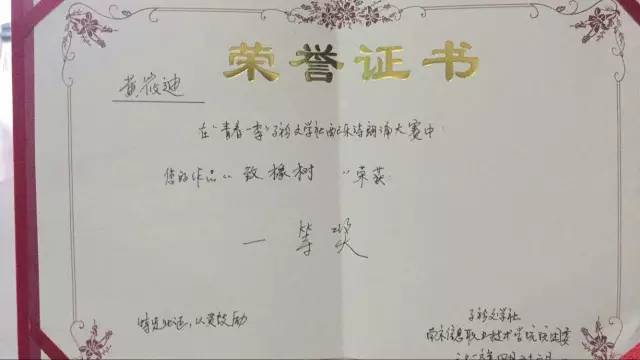 荣誉证书
黄筱迪
在"青春一季"子衿文学社配乐诗朗诵大赛中
您的作品"致橡树"荣获
一等奖
特发此证,以资鼓励
子衿文学社
南京信息职业技术学院院团委